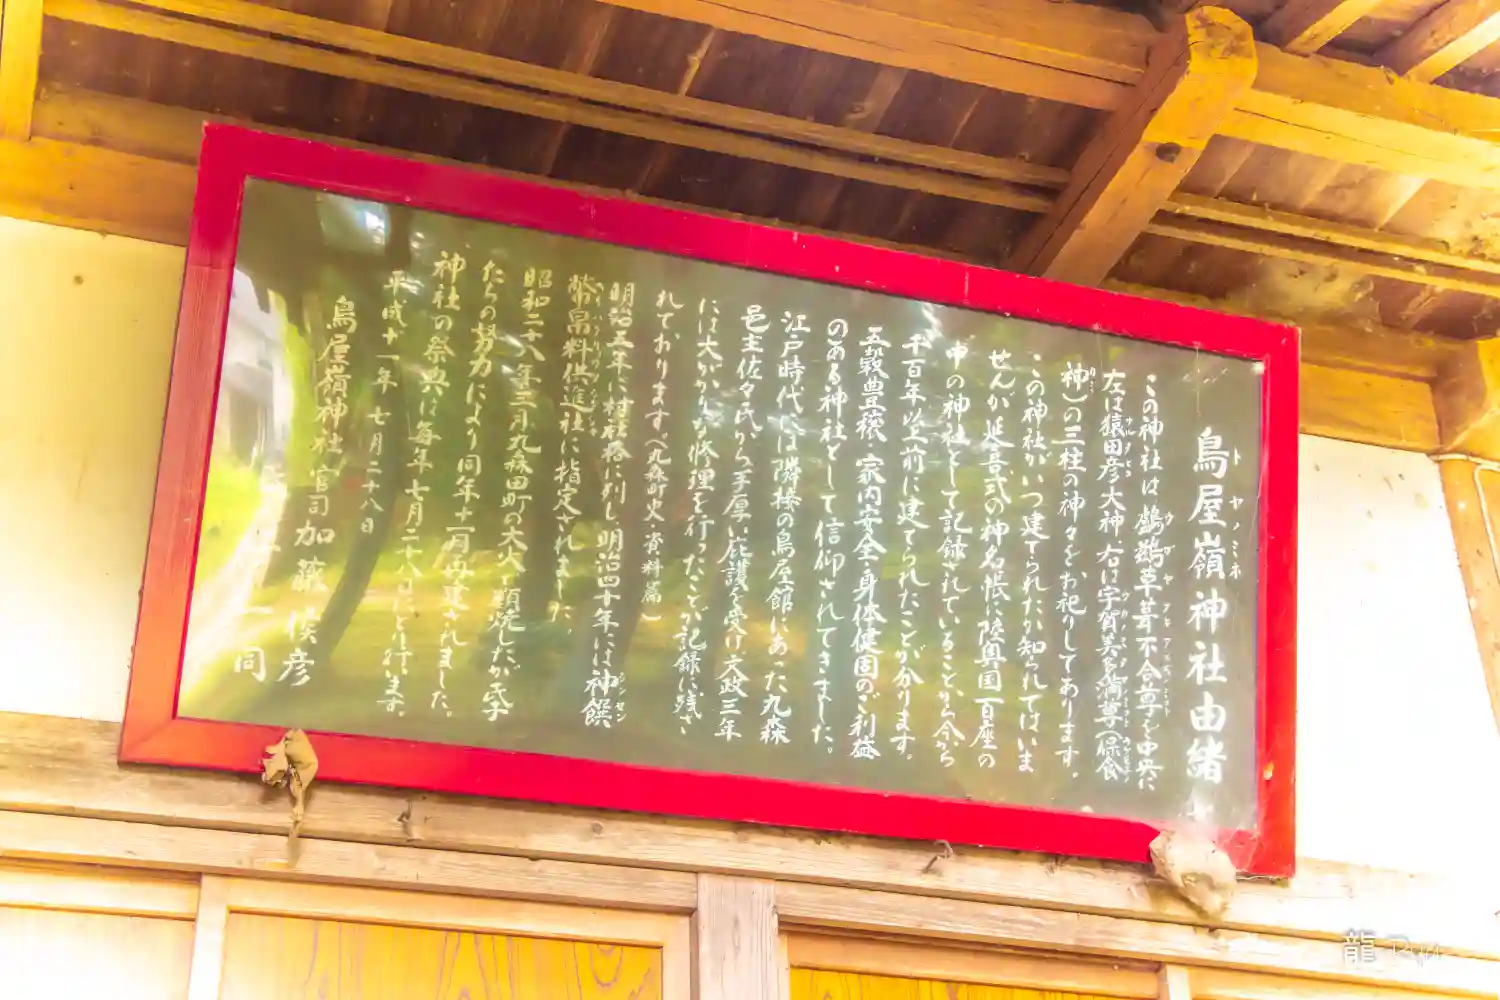 鳥屋嶺神社由緒
トヤノミネ
この神社は鸕鶿草葺不合尊を中央に
左は猿田彦大神、右は宇賀美多麻尊(保食
サルタヒコ
神)の三柱の神々をお祀りしてあります。
この神社がいつ建てられたか知られてはいま
せんが延喜式の神名帳に陸奥国百座の
中の神社として記録されていることから今から
千百年以上前に建てられたことが分ります。
五穀豊穣、家内安全、身体健固のご利益
のある神社として信仰されてきました。
江戸時代には隣接の鳥屋館にあった丸森
邑主佐々氏から手厚い庇護を受け文政三年
には大がかりな修理を行ったことが記録に残さ
れております。(丸森町史・資料篇)
明治五年に村社格に列し明治四十年には神饌
シンセン
幣帛料供進社に指定されました。
昭和二十八年三月丸森田町の大火で類焼したが氏子
たちの努力により同年十一月再建されました。
神社の祭典は毎年七月二十八日にとり行います。
平成十一年七月二十八日
鳥屋嶺神社 宮司 加藤 俊彦
一同
龍 Ryu